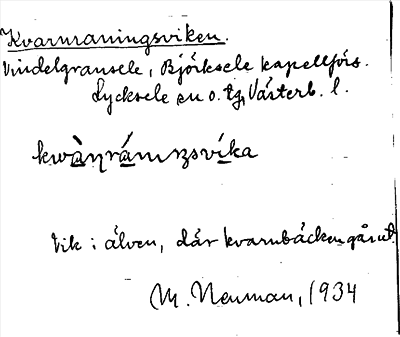 Kvarnraningsviken.
Vindelgransele, Björksele kapellförs.
Lycksele sn o. tg, Västerb. l.
Vik i älven, där kvarnbäcken går ut.
M. Neuman, 1934